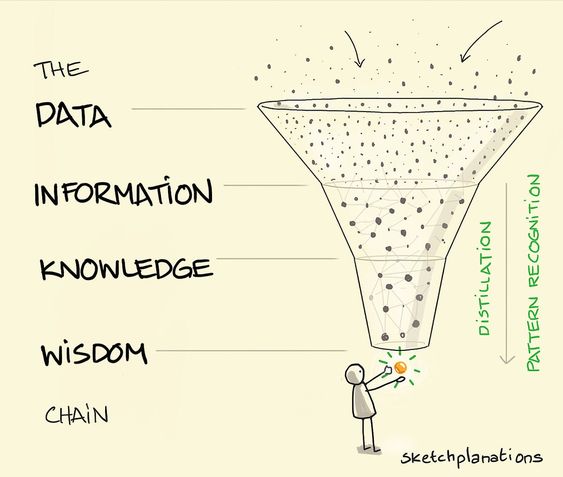 THE
DATA
INFORMATION
KNOWLEDGE
WISDOM
CHAIN
DISTILLATION
PATTERN RECOGNITION
sketchplanations